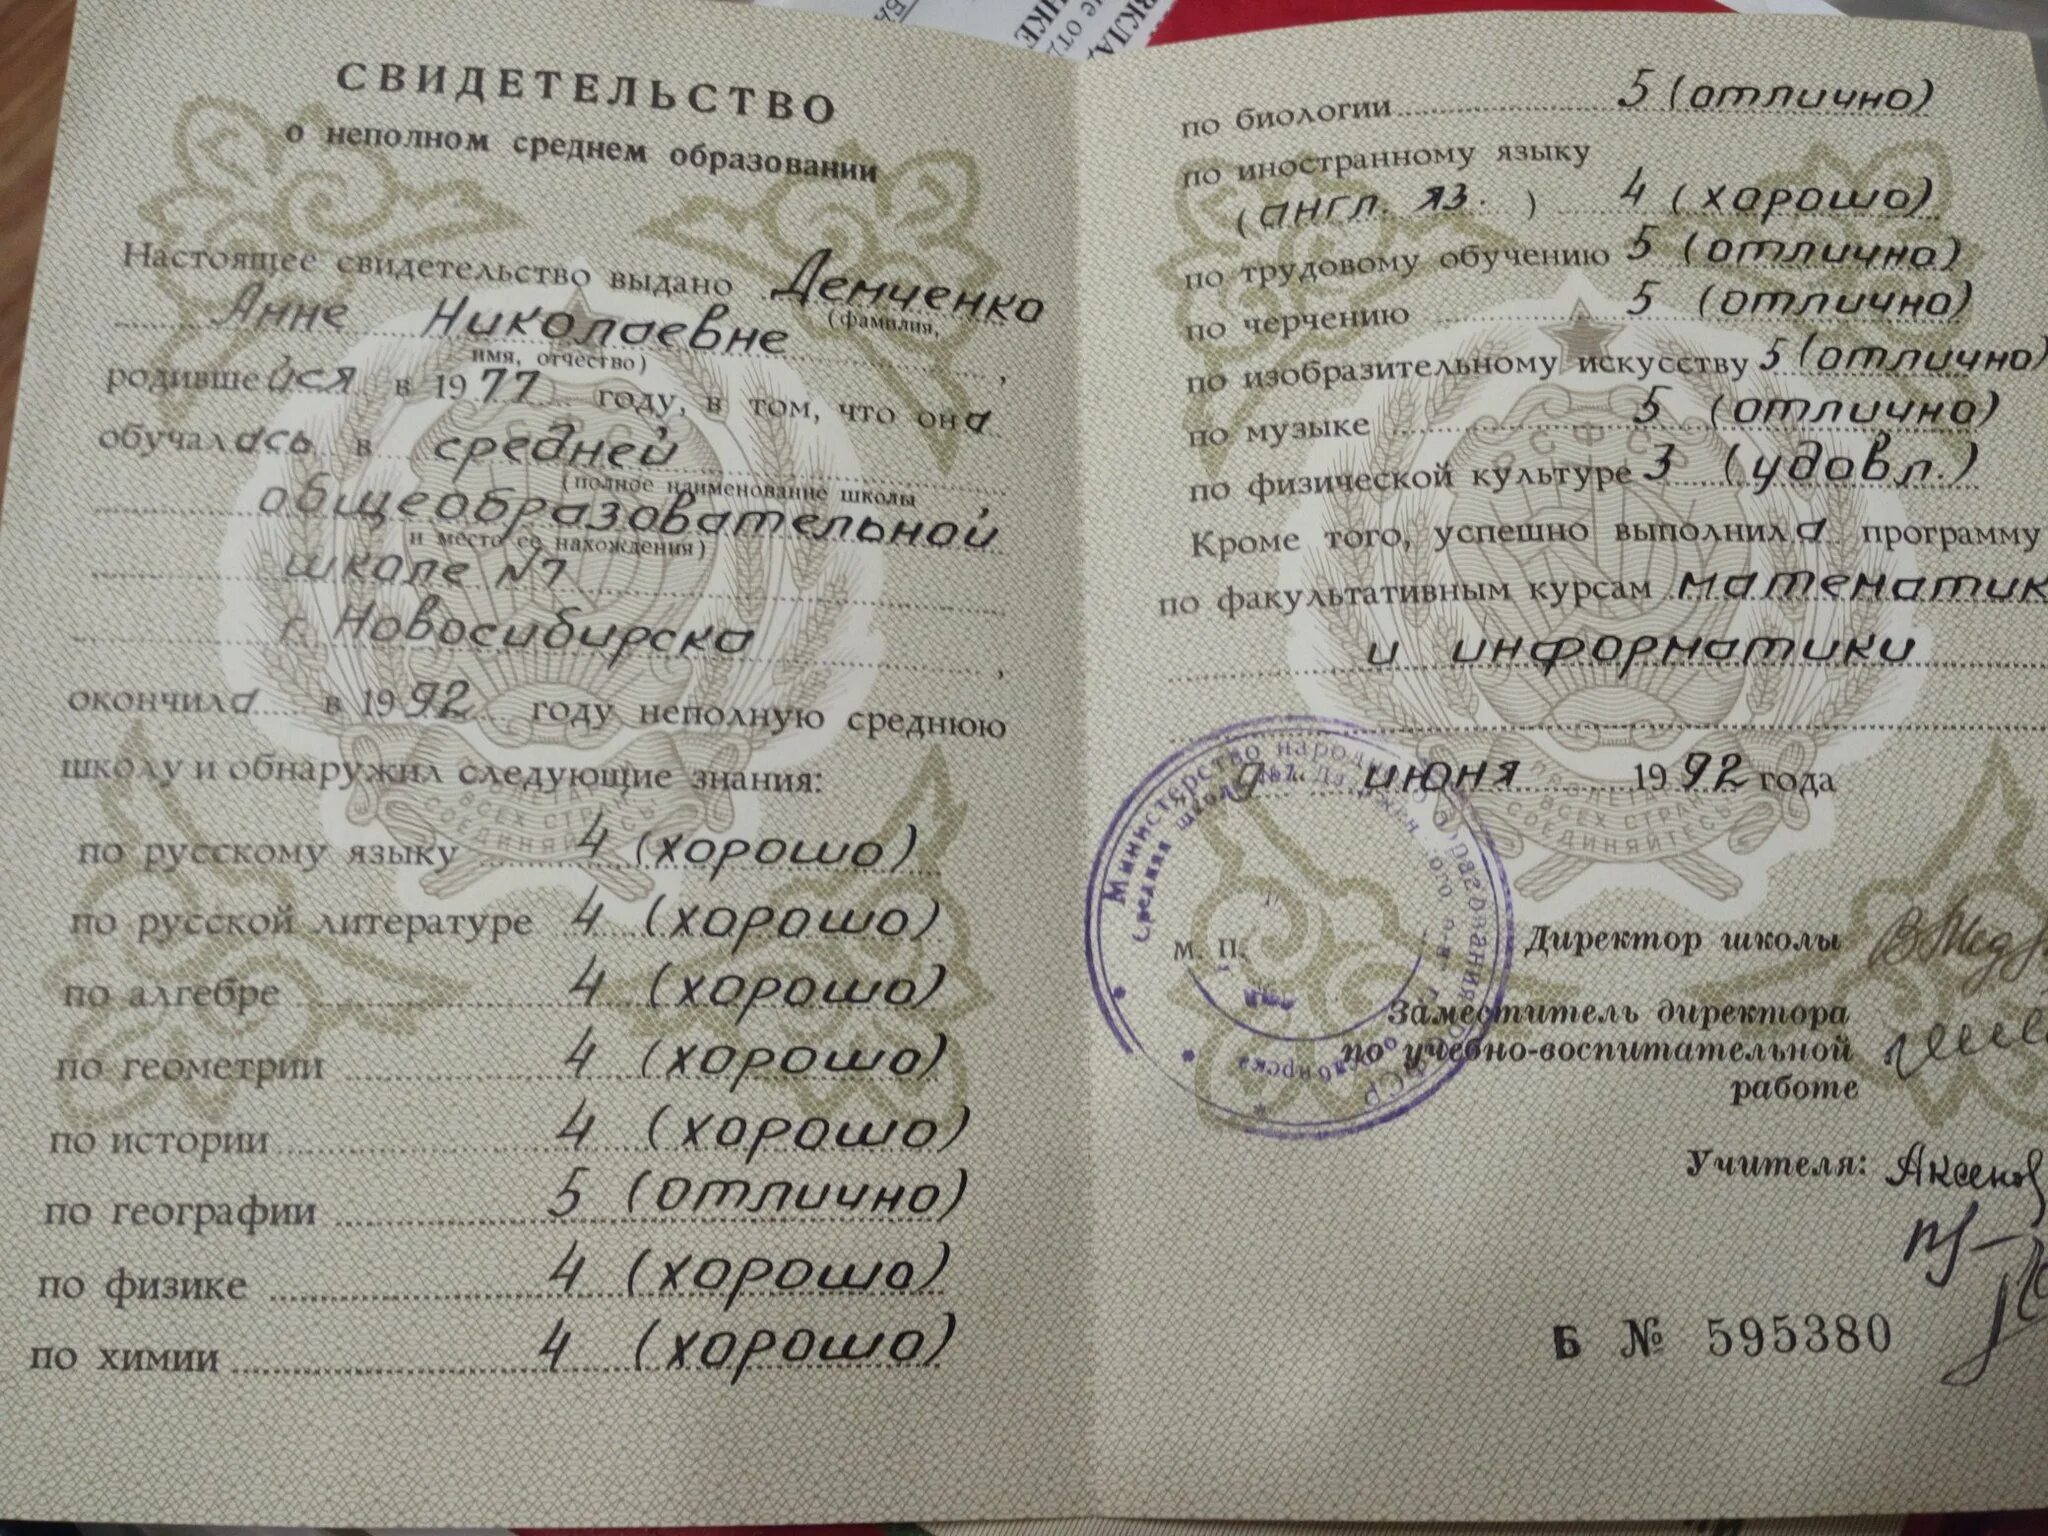 СВИДЕТЕЛЬСТВО
о неполном среднем образовании
Настоящее свидетельство выдано Демченко
(фамилия,
Анне Николаевне
имя, отчество)
родившейся в 1977 году, в том, что она
обучалась в средней
(полное наименование школы
общеобразовательной
и место ее нахождения)
школе №7
г. Новосибирска,
окончила в 1992 году неполную среднюю
школу и обнаружил следующие знания:
по русскому языку 4 (хорошо)
по русской литературе 4 (хорошо)
по алгебре 4 (хорошо)
по геометрии 4 (хорошо)
по истории 4 (хорошо)
по географии 5 (отлично)
по физике 4 (хорошо)
по химии 4 (хорошо)
по биологии 5 (отлично)
по иностранному языку
(англ. яз.) 4 (хорошо)
по трудовому обучению 5 (отлично)
по черчению 5 (отлично)
по изобразительному искусству 5 (отлично)
по музыке 5 (отлично)
по физической культуре 3 (удовл.)
Кроме того, успешно выполнила программу
по факультативным курсам математик
и информатики
9 июня 1992 года
Министерство народного образования РСФСР
Средняя школа №7 Дзержинского р-на г. Новосибирска
М. П.
Директор школы
Заместитель директора
по учебно-воспитательной
работе
Учителя: Аксенов
Б № 595380